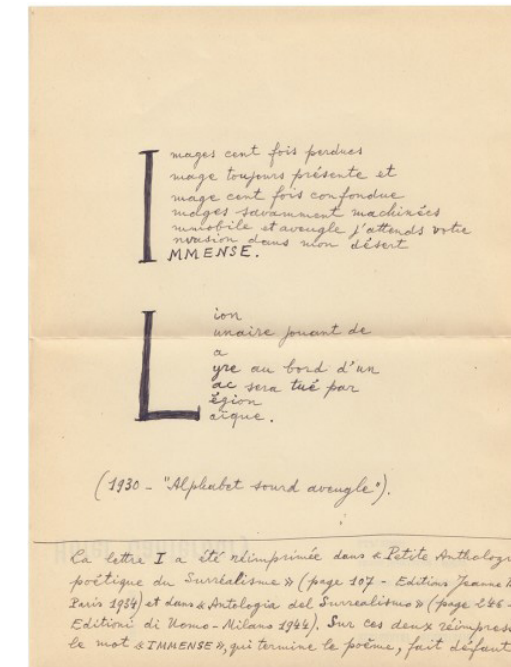 I mages cent fois perdues
mage toujours présente et
mage cent fois confondue
mages savamment machinées
mmobile et aveugle j'attends votre
nvasion dans mon désert
MMENSE.
L ion
unaire jouant de
a
yre au bord d'un
ac sera tué par
égion
aïque.
(1930 - "Alphabet sourd aveugle").
La lettre I a été réimprimée dans « Petite Anthologi
poétique du Surréalisme » (page 107 - Editions Jeanne
Paris 1934) et dans « Antologia del Surrealismo » (page 246 -
Editioni di Uomo - Milano 1944). Sur ces deux réimpress
le mot « IMMENSE », qui termine le poème, fait défaut